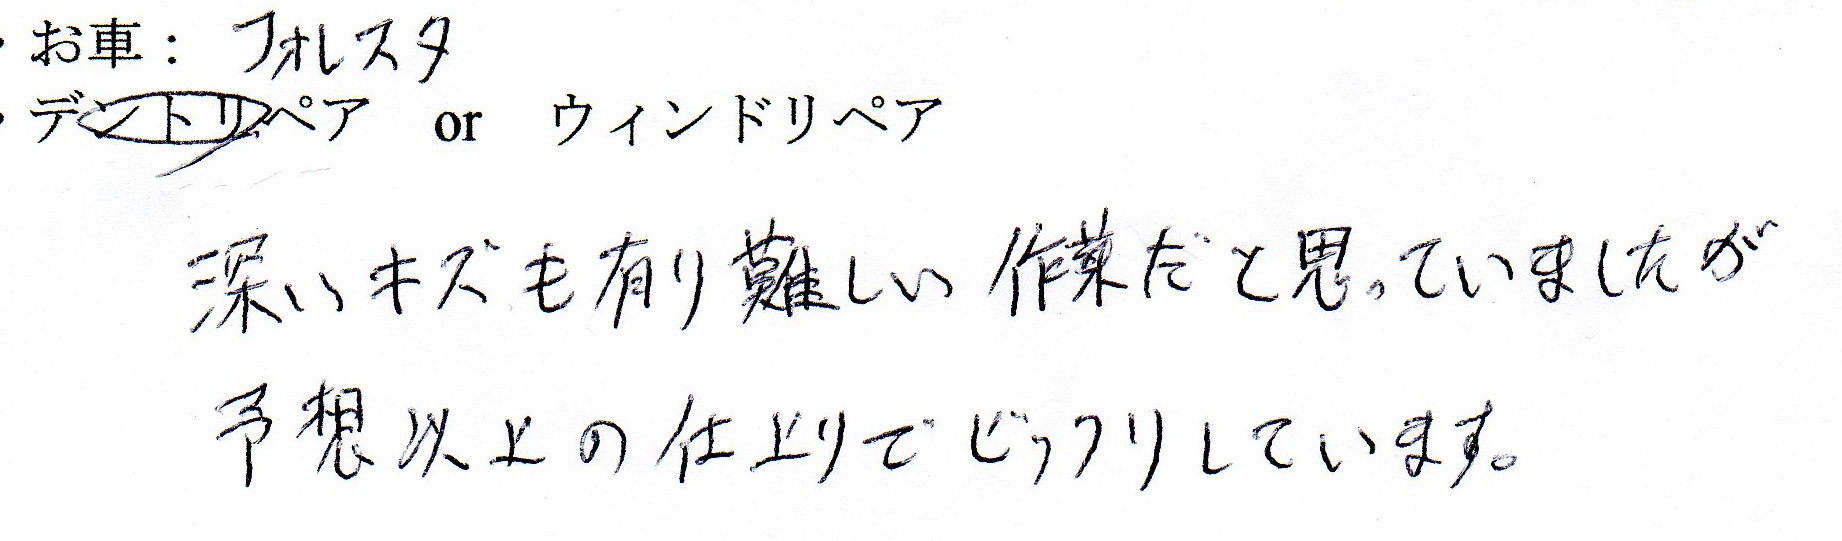 ・お車： フォレスタ
・デントリペア or ウィンドリペア
深いキズも有り難しい作業だと思っていましたが
予想以上の仕上りでビックリしています。